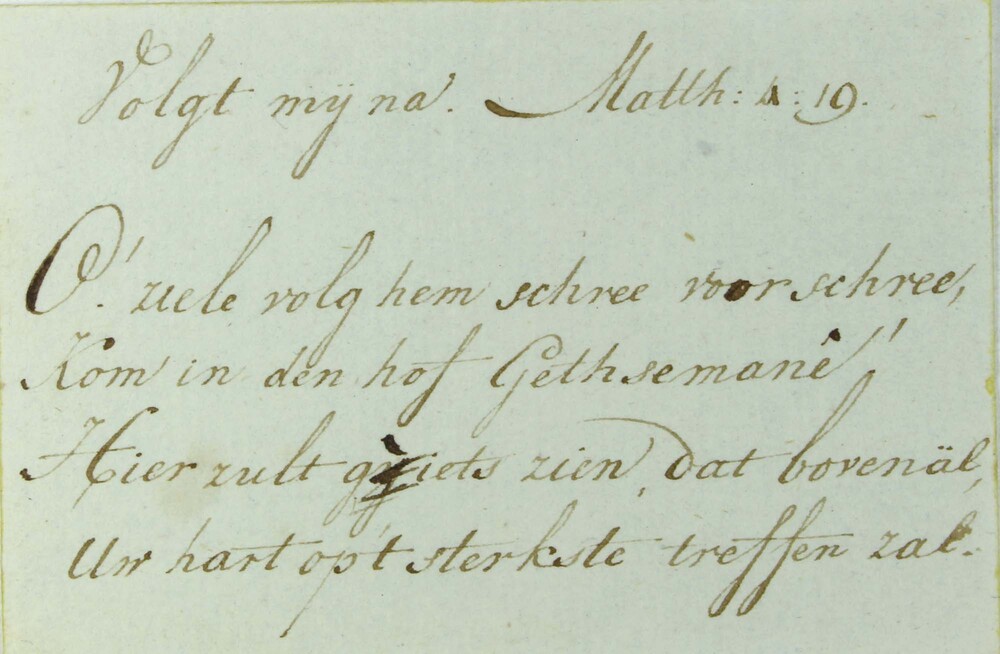 Volgt mij na. Matth: 4: 19.
O! ziele volg hem schree voor schree,
Kom in den hof Gethsemané!
Hier zult gij iets zien, dat bovenäl,
Uw hart op't sterkste treffen zal.